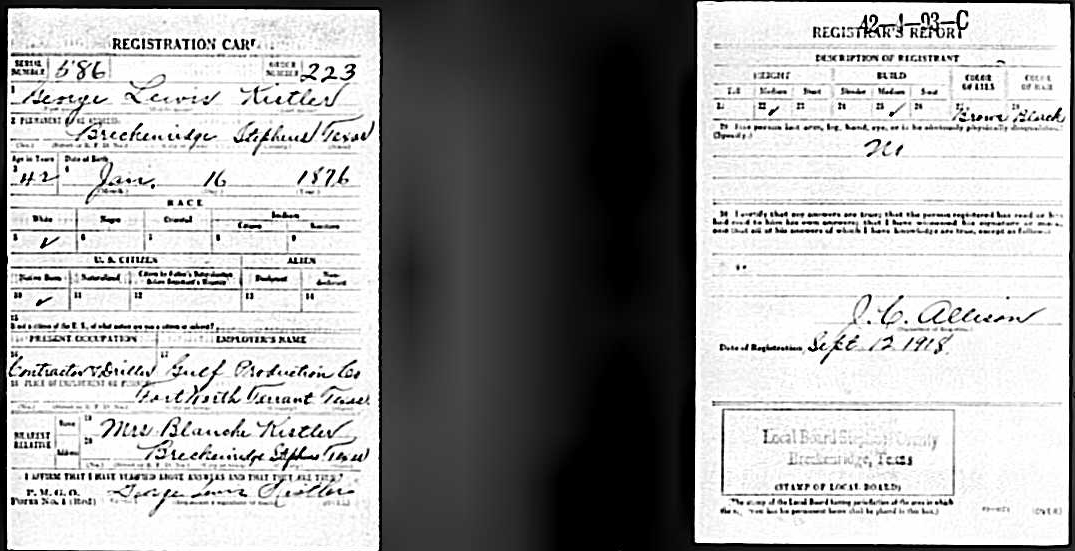 REGISTRATION CARD
SERIAL NUMBER 586 ORDER NUMBER 223
1 George Lewis Kistler
2 PERMANENT HOME ADDRESS:
Breckenridge Stephens Texas
Age in Years Date of Birth
3 42 4 Jan. 16 1876
RACE
White Negro Oriental Indian
Citizen
5 ✓ 6 7 8 9
U. S. CITIZEN ALIEN
Native Born Naturalized Citizen by Father's Naturalization Before Registrant's Majority Declarant Non-declarant
10 ✓ 11 12 13 14
15
If not a citizen of the U. S., of what nation are you a citizen or subject?
PRESENT OCCUPATION EMPLOYER'S NAME
16 Contractor & Driller 17 Gulf Production Co
18 PLACE OF EMPLOYMENT OR BUSINESS
Fort Worth Terrant Texas
NEAREST RELATIVE
Name 19 Mrs. Blanche Kistler
Address 20 Breckenridge Stephens Texas
I AFFIRM THAT I HAVE VERIFIED ABOVE ANSWERS AND THAT THEY ARE TRUE
P. M. G. O.
Form No. 1 (Red) George Lewis Kistler
42-4-93-C
REGISTRAR'S REPORT
DESCRIPTION OF REGISTRANT
HEIGHT BUILD COLOR OF EYES COLOR OF HAIR
Tall Medium Short Slender Medium Stout
21 22 ✓ 23 24 25 ✓ 26 27 Brown 28 Black
29 Has person lost arm, leg, hand, eye, or is he obviously physically disqualified?
(Specify.)
30 I certify that my answers are true; that the person registered has read or has
had read to him his own answers; that I have witnessed his signature or mark,
and that all of his answers of which I have knowledge are true, except as follows:
J. C. Allison
Date of Registration Sept 12 1918
Local Board Stephens County
Breckenridge, Texas
(STAMP OF LOCAL BOARD)
(The stamp of the Local Board having jurisdiction of the area in which
the registrant has his permanent home shall be placed in this box.)
(OVER)